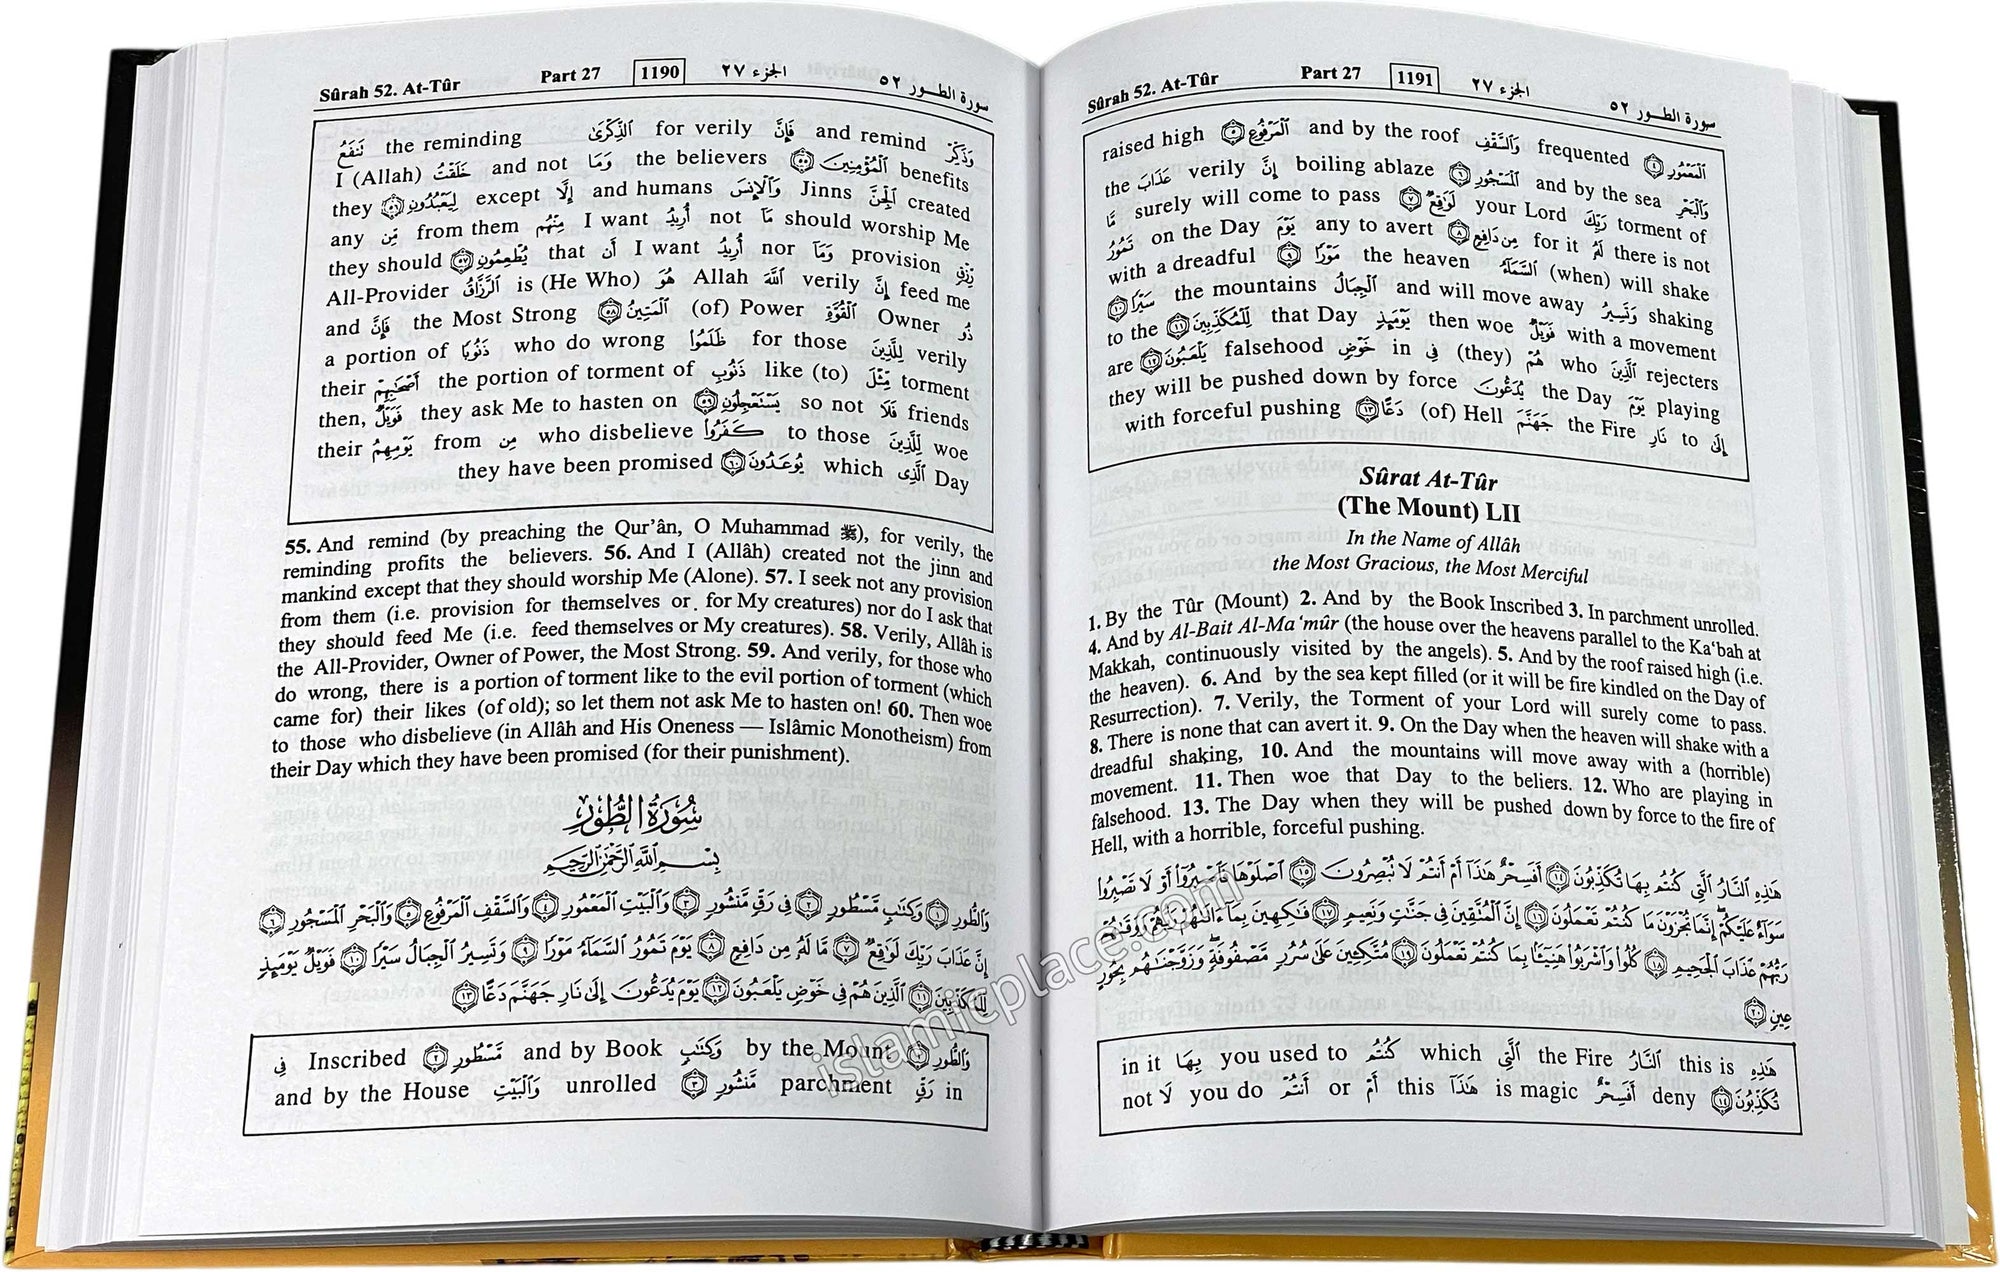 Sûrah 52. At-Tûr Part 27 1190 الجزء ٢٧ سورة الطور ٥٢
وَذَكِّرْ and remind فَإِنَّ for verily ٱلذِّكْرَىٰ the reminding تَنفَعُ
benefits ٱلْمُؤْمِنِينَ ٥٥ the believers وَمَا and not خَلَقْتُ I (Allah)
created ٱلْجِنَّ Jinns وَٱلْإِنسَ and humans إِلَّا except لِيَعْبُدُونِ ٥٦ they
should worship Me مَآ not أُرِيدُ I want مِنْهُم from them مِّن any
رِّزْقٍ provision وَمَآ nor أُرِيدُ I want أَن that يُطْعِمُونِ ٥٧ they should
feed me إِنَّ verily ٱللَّهَ Allah هُوَ is (He Who) ٱلرَّزَّاقُ All-Provider
ذُو Owner ٱلْقُوَّةِ (of) Power ٱلْمَتِينُ ٥٨ the Most Strong فَإِنَّ and
verily لِلَّذِينَ for those ظَلَمُوا۟ who do wrong ذَنُوبًا a portion of
torment مِّثْلَ like (to) ذَنُوبِ the portion of torment of أَصْحَٰبِهِمْ their
friends فَلَا so not يَسْتَعْجِلُونِ ٥٩ they ask Me to hasten on فَوَيْلٌ then,
woe لِّلَّذِينَ to those كَفَرُوا۟ who disbelieve مِن from يَوْمِهِمُ their
Day ٱلَّذِى which يُوعَدُونَ ٦٠ they have been promised
55. And remind (by preaching the Qur’ân, O Muhammad ﷺ), for verily, the
reminding profits the believers. 56. And I (Allâh) created not the jinn and
mankind except that they should worship Me (Alone). 57. I seek not any provision
from them (i.e. provision for themselves or for My creatures) nor do I ask that
they should feed Me (i.e. feed themselves or My creatures). 58. Verily, Allâh is
the All-Provider, Owner of Power, the Most Strong. 59. And verily, for those who
do wrong, there is a portion of torment like to the evil portion of torment (which
came for) their likes (of old); so let them not ask Me to hasten on! 60. Then woe
to those who disbelieve (in Allâh and His Oneness — Islâmic Monotheism) from
their Day which they have been promised (for their punishment).
سُورَةُ الطُّورِ
بِسْمِ ٱللَّهِ ٱلرَّحْمَٰنِ ٱلرَّحِيمِ
وَٱلطُّورِ ١ وَكِتَٰبٍ مَّسْطُورٍ ٢ فِى رَقٍّ مَّنشُورٍ ٣ وَٱلْبَيْتِ ٱلْمَعْمُورِ ٤ وَٱلسَّقْفِ ٱلْمَرْفُوعِ ٥ وَٱلْبَحْرِ ٱلْمَسْجُورِ ٦
إِنَّ عَذَابَ رَبِّكَ لَوَٰقِعٌ ٧ مَّا لَهُۥ مِن دَافِعٍ ٨ يَوْمَ تَمُورُ ٱلسَّمَآءُ مَوْرًا ٩ وَتَسِيرُ ٱلْجِبَالُ سَيْرًا ١٠ فَوَيْلٌ يَوْمَئِذٍ
لِّلْمُكَذِّبِينَ ١١ ٱلَّذِينَ هُمْ فِى خَوْضٍ يَلْعَبُونَ ١٢ يَوْمَ يُدَعُّونَ إِلَىٰ نَارِ جَهَنَّمَ دَعًّا ١٣
وَٱلطُّورِ ١ by the Mount وَكِتَٰبٍ and by Book مَّسْطُورٍ ٢ Inscribed فِى
in رَقٍّ parchment مَّنشُورٍ ٣ unrolled وَٱلْبَيْتِ and by the House
Sûrah 52. At-Tûr Part 27 1191 الجزء ٢٧ سورة الطور ٥٢
ٱلْمَعْمُورِ ٤ frequented وَٱلسَّقْفِ and by the roof ٱلْمَرْفُوعِ ٥ raised high
وَٱلْبَحْرِ and by the sea ٱلْمَسْجُورِ ٦ boiling ablaze إِنَّ verily عَذَابَ the
torment of رَبِّكَ your Lord لَوَٰقِعٌ ٧ surely will come to pass مَّا
there is not لَهُۥ for it مِن دَافِعٍ ٨ any to avert يَوْمَ on the Day تَمُورُ
(when) will shake ٱلسَّمَآءُ the heaven مَوْرًا ٩ with a dreadful
shaking وَتَسِيرُ and will move away ٱلْجِبَالُ the mountains سَيْرًا ١٠
with a movement فَوَيْلٌ then woe يَوْمَئِذٍ that Day لِّلْمُكَذِّبِينَ ١١ to the
rejecters ٱلَّذِينَ who هُمْ (they) فِى in خَوْضٍ falsehood يَلْعَبُونَ ١٢ are
playing يَوْمَ the Day يُدَعُّونَ they will be pushed down by force
إِلَىٰ to نَارِ the Fire جَهَنَّمَ (of) Hell دَعًّا ١٣ with forceful pushing
Sûrat At-Tûr
(The Mount) LII
In the Name of Allâh
the Most Gracious, the Most Merciful
1. By the Tûr (Mount) 2. And by the Book Inscribed 3. In parchment unrolled.
4. And by Al-Bait Al-Ma‘mûr (the house over the heavens parallel to the Ka‘bah at
Makkah, continuously visited by the angels). 5. And by the roof raised high (i.e.
the heaven). 6. And by the sea kept filled (or it will be fire kindled on the Day of
Resurrection). 7. Verily, the Torment of your Lord will surely come to pass.
8. There is none that can avert it. 9. On the Day when the heaven will shake with a
dreadful shaking, 10. And the mountains will move away with a (horrible)
movement. 11. Then woe that Day to the beliers. 12. Who are playing in
falsehood. 13. The Day when they will be pushed down by force to the fire of
Hell, with a horrible, forceful pushing.
هَٰذِهِ ٱلنَّارُ ٱلَّتِى كُنتُم بِهَا تُكَذِّبُونَ ١٤ أَفَسِحْرٌ هَٰذَآ أَمْ أَنتُمْ لَا تُبْصِرُونَ ١٥ ٱصْلَوْهَا فَٱصْبِرُوٓا۟ أَوْ لَا تَصْبِرُوا۟
سَوَآءٌ عَلَيْكُمْ إِنَّمَا تُجْزَوْنَ مَا كُنتُمْ تَعْمَلُونَ ١٦ إِنَّ ٱلْمُتَّقِينَ فِى جَنَّٰتٍ وَنَعِيمٍ ١٧ فَٰكِهِينَ بِمَآ ءَاتَىٰهُمْ رَبُّهُمْ وَوَقَىٰهُمْ
رَبُّهُمْ عَذَابَ ٱلْجَحِيمِ ١٨ كُلُوا۟ وَٱشْرَبُوا۟ هَنِيٓـًٔا بِمَا كُنتُمْ تَعْمَلُونَ ١٩ مُتَّكِـِٔينَ عَلَىٰ سُرُرٍ مَّصْفُوفَةٍ وَزَوَّجْنَٰهُم بِحُورٍ
عِينٍ ٢٠
هَٰذِهِ this is ٱلنَّارُ the Fire ٱلَّتِى which كُنتُم you used to بِهَا in it
تُكَذِّبُونَ ١٤ deny أَفَسِحْرٌ is magic هَٰذَآ this أَمْ or أَنتُمْ you do لَا not
islamicplace.com